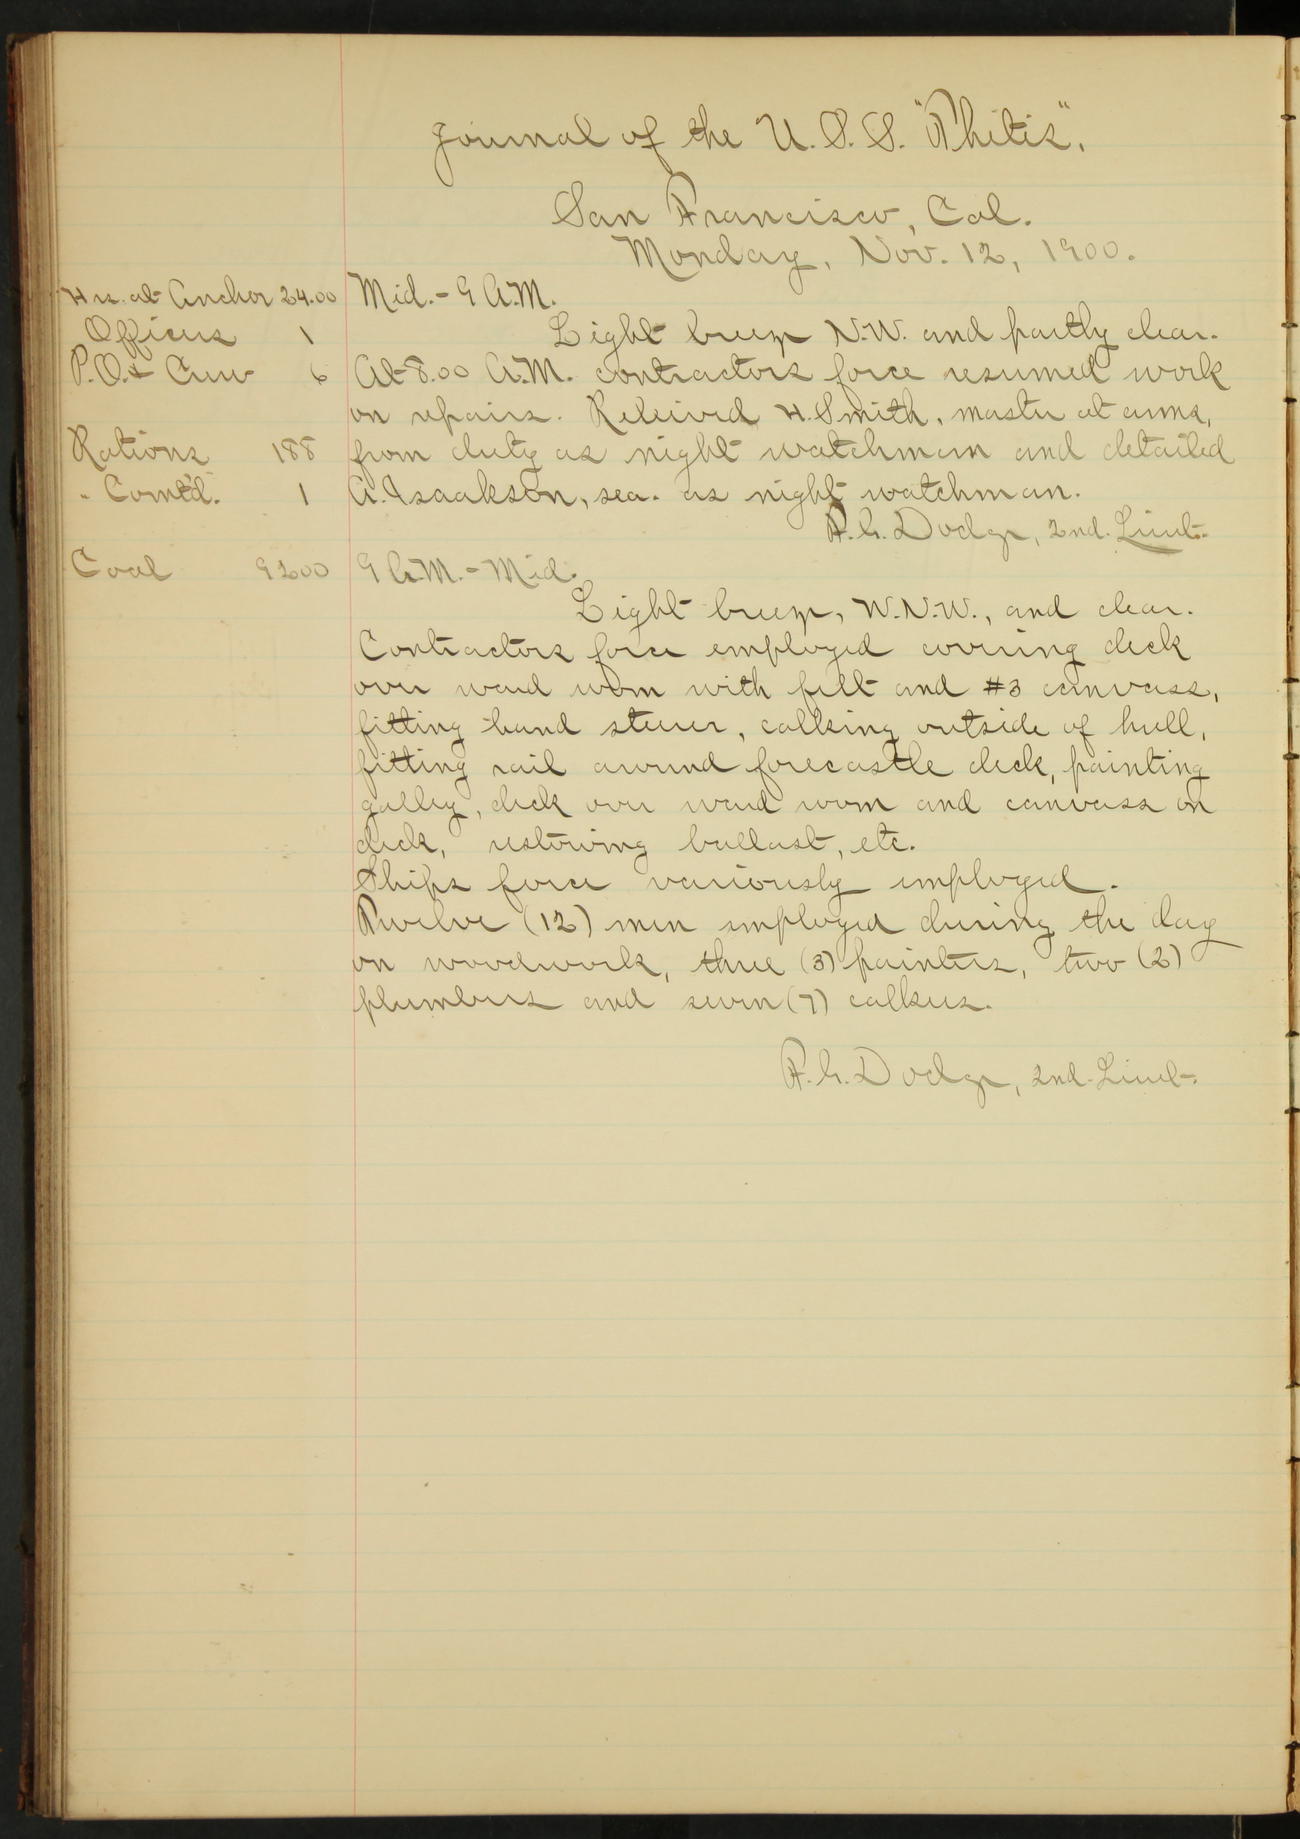 Journal of the U.S.S. "Thetis".
San Francisco, Cal.
Monday, Nov. 12, 1900.
Hrs. at Anchor 24.00
Officers 1
P.O. & Crew 6
Rations 188
" Comtd. 1
Coal 9200
Mid. - 9 A.M.
Light breeze N.W. and partly clear.
At 8.00 A.M. contractors force resumed work
on repairs. Relieved H. Smith, master at arms,
from duty as night watchman and detailed
A. Isaakson, sea. as night watchman.
F.G. Dodge, 2nd. Lieut.
9 A.M. - Mid.
Light breeze, W.N.W., and clear.
Contractors force employed covering deck
over ward room with felt and #3 canvass,
fitting hand steerer, calking outside of hull,
fitting rail around forecastle deck, painting
galley, deck over ward room and canvass on
deck, restowing ballast, etc.
Ships force variously employed.
Twelve (12) men employed during the day
on woodwork, three (3) painters, two (2)
plumbers and seven (7) calkers.
F.G. Dodge, 2nd. Lieut.